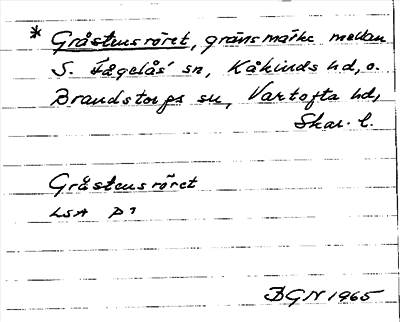 * Gråstensröret, gränsmärke mellan
S. Fågelås sn, Kåkinds hd, o.
Brandstorps sn, Vartofta hd,
Skar. l.
Gråstensröret
LSA D7
BGN 1965